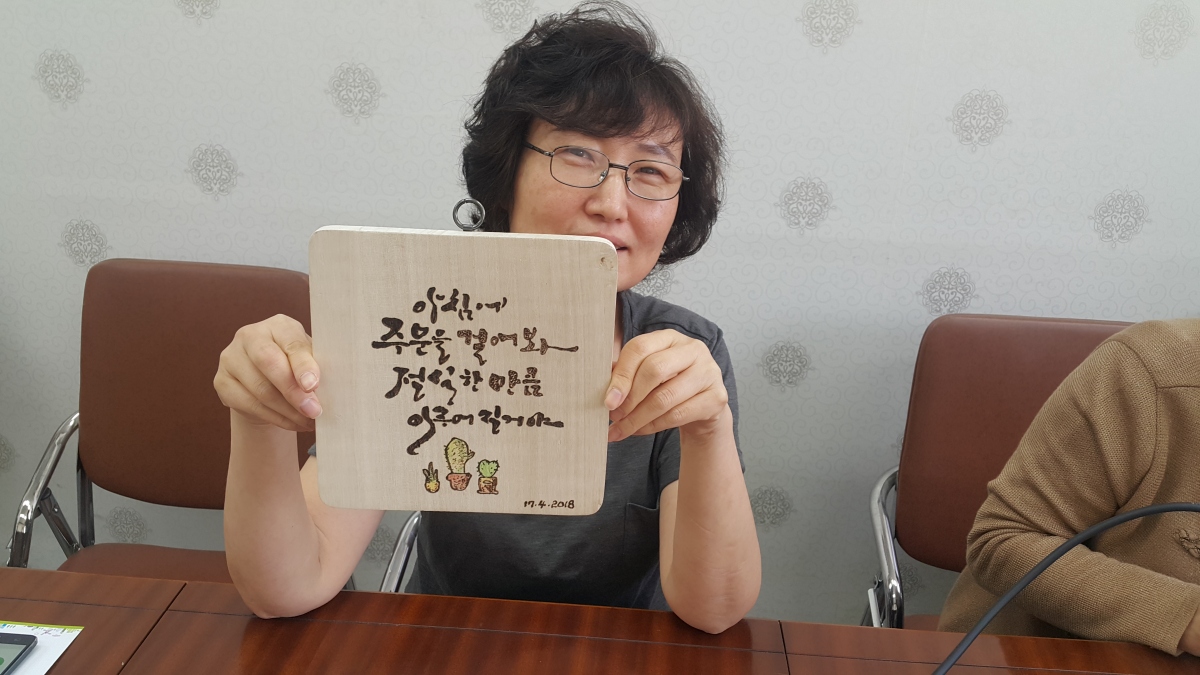 아침에
주문을 걸어봐
절실한 만큼
이루어 질거야
17.4.2018